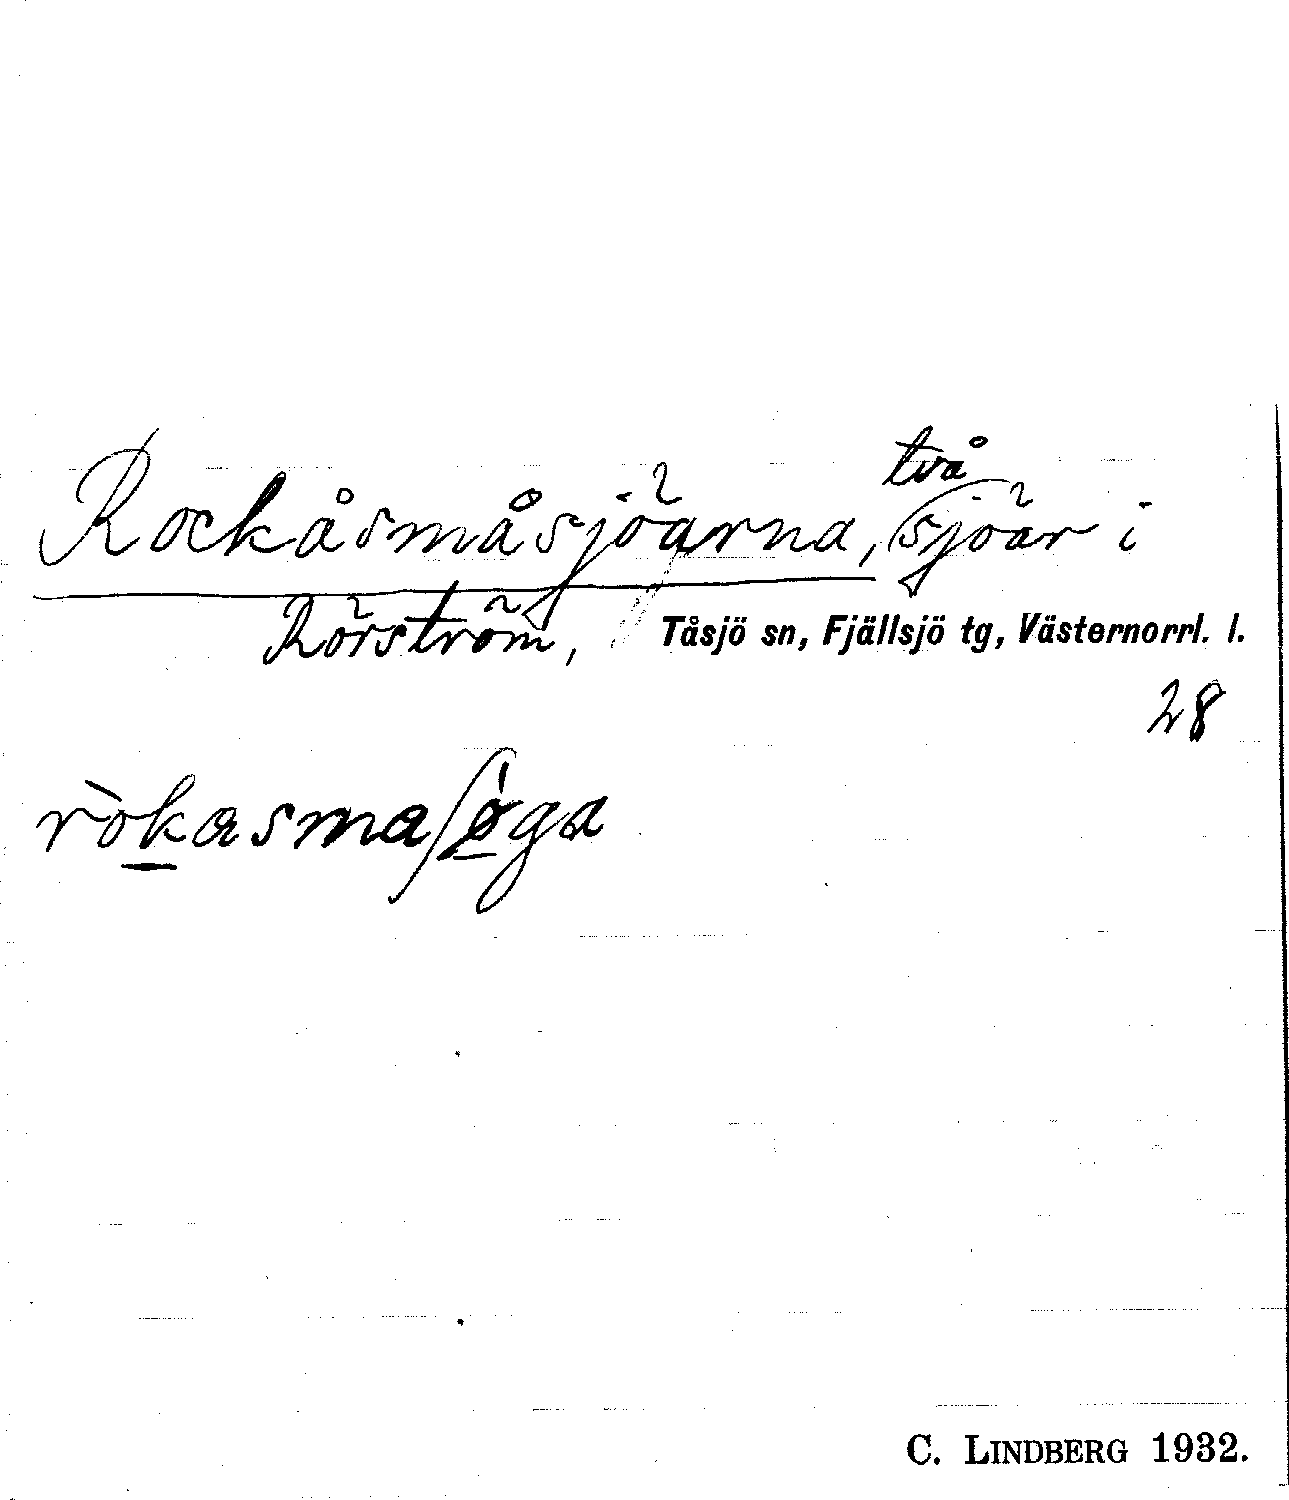 Rockåsmåsjöarna, två sjöar i
Rörström, Tåsjö sn, Fjällsjö tg, Västernorrl. l.
28
ròkasmaʃǿga
C. LINDBERG 1932.